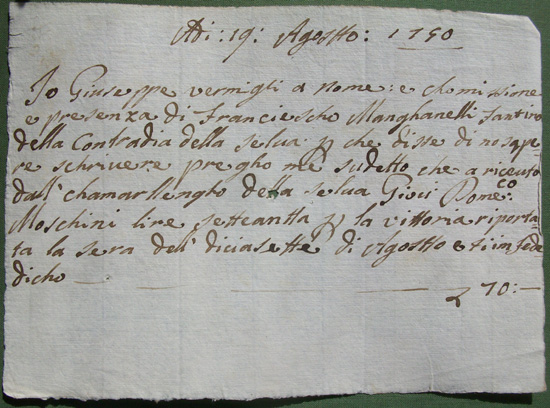 Adi: 19: Agostto: 1750
Io Giuseppe vermigli a nome: e chomissione
e presenza di Franciescho Manghanelli fantino
della Contradia della selua p che disse di no sape
re schrivere pregho me sudetto che a riceuto
dall' chamarllengho della selua Gioci Dome:co
Moschini lire setteantta p la vittoria riporta-
ta la sera dell' diciasette di Agostto e ti in fede
dicho — — — — — 70:—